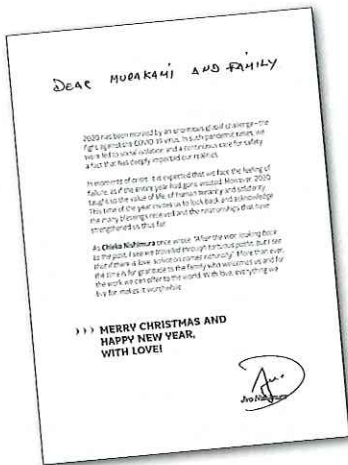 DEAR MURAKAMI AND FAMILY
2020 has been marked by an enormous global challenge—the
fight against the COVID-19 virus. In such pandemic times, we
were led to social isolation and a continuous care for safety,
a fact that has deeply impacted our realities.
In moments of crisis, it is expected that we face the feeling of
failure, as if the entire year had gone wasted. However, 2020
taught us the value of life, of human tenacity and solidarity.
This time of the year invites us to look back and acknowledge
the many blessings received and the relationships that have
strengthened us thus far.
As Chieko Nishimura once wrote: "After the war, looking back
to the past, I see we travelled through tortuous paths, but I see
that if there is love, solution comes naturally". More than ever,
the time is for gratitude to the family who welcomes us and for
the work we can offer to the world. With love, everything we
live for makes it worthwhile.
››› MERRY CHRISTMAS AND
HAPPY NEW YEAR,
WITH LOVE!
Jivo Nishimura